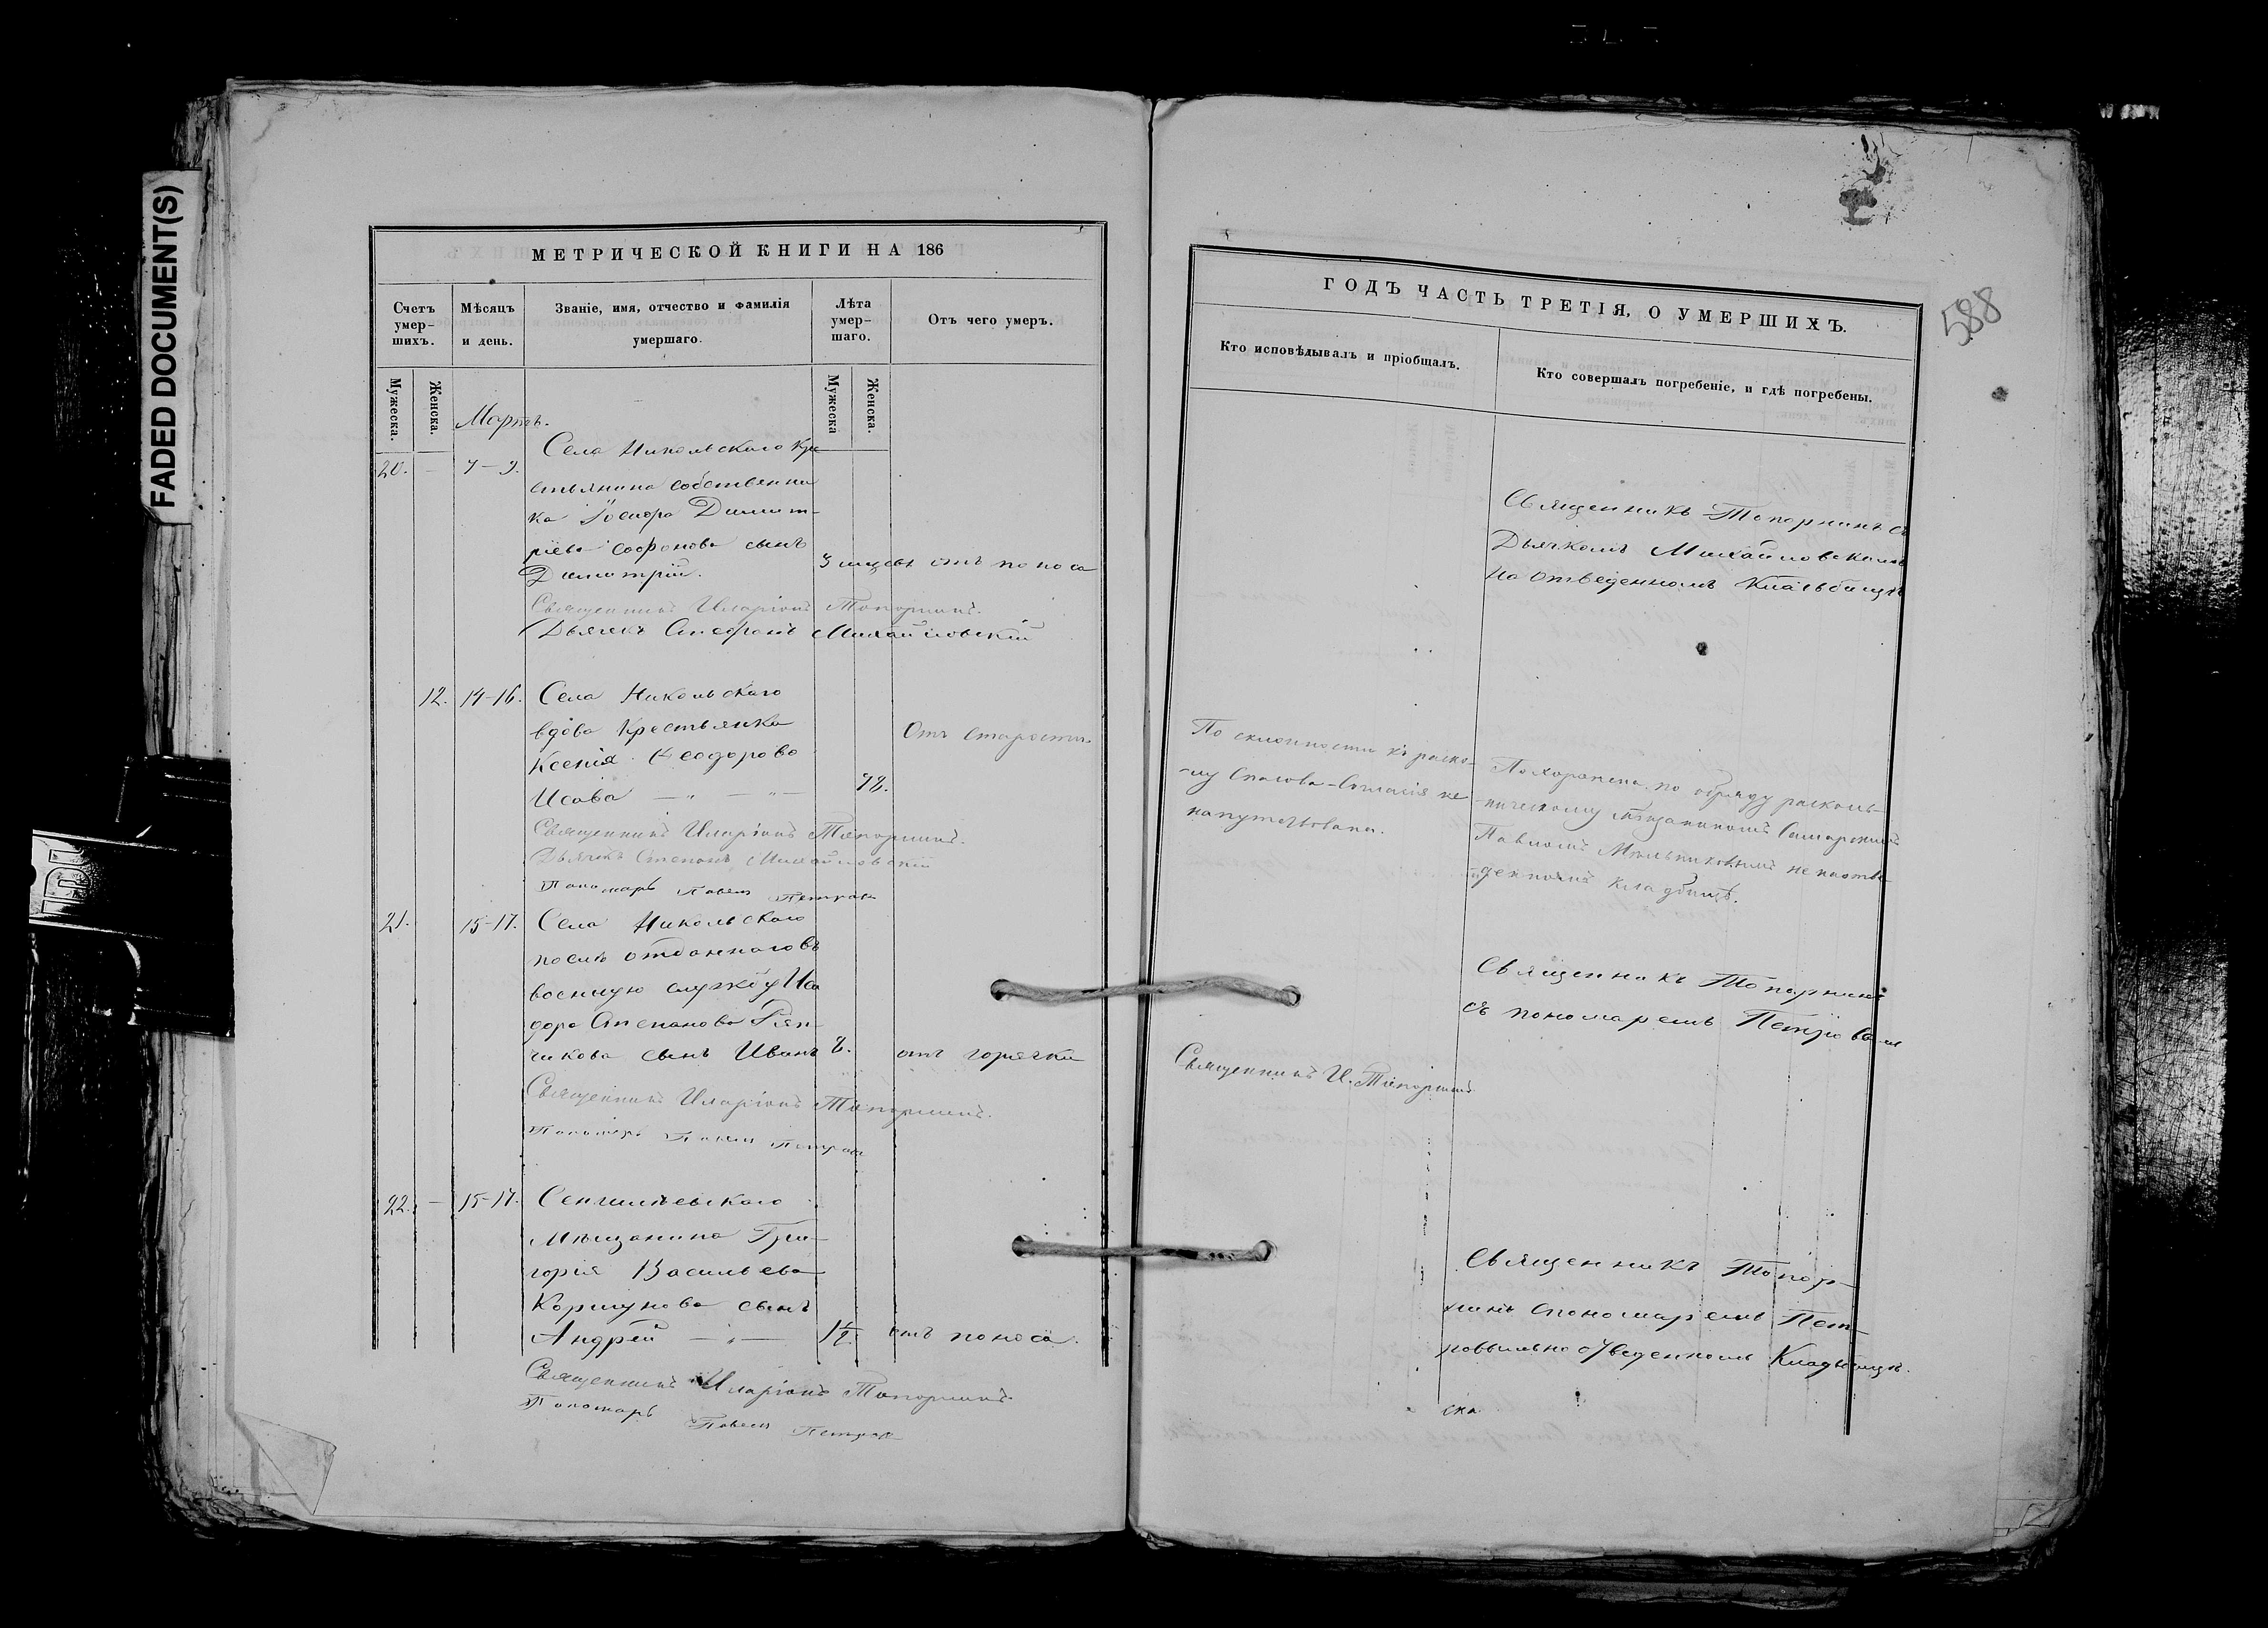 FADED DOCUMENT(S)
МЕТРИЧЕСКОЙ КНИГИ НА 186
Счетъ умер-шихъ.
Мѣсяцъ и день.
Званіе, имя, отчество и фамилія умершаго.
Лѣта умер-шаго.
Отъ чего умеръ.
Мужеска.
Женска.
Мужеска
Женска.
Мартъ.
20. — 7-9.
Села Никольскаго Кре
стьянина собственни
ка Димит-
ріева Софонова сынъ
Димитрій.
3 мѣсяц. отъ поноса
Священникъ Иларіонъ Топорнинъ.
Дьячекъ Стефанъ Михайловскій
12. 14-16.
Села Никольскаго
вдова Крестьянка
Ксенія Ѳеодорова
Исаева — „ — „ —
78.
Отъ старости.
Священникъ Иларіонъ Топорнинъ.
Дьячекъ Степанъ Михайловскій
Пономарь Павелъ Петровъ
21. 15-17.
Села Никольскаго
послѣ отданнаго въ
военную службу Иси
дора Степанова Ряп-
чикова сынъ Иванъ
8.
отъ горячки
Священникъ Иларіонъ Топорнинъ.
Пономарь Павелъ Петровъ
22. — 15-17.
Сенгилѣевскаго
Мѣщанина Гри-
горія Васильева
Коршунова сынъ
Андрей — „ —
1 1/2. отъ поноса.
Священникъ Иларіонъ Топорнинъ.
Пономарь Павелъ Петровъ
588
ГОДЪ ЧАСТЬ ТРЕТІЯ, О УМЕРШИХЪ.
Кто исповѣдывалъ и пріобщалъ.
Кто совершалъ погребеніе, и гдѣ погребены.
Священникъ Топорнинъ съ
Дьячкомъ Михайловскимъ
На отведенномъ Кладбищѣ
По склонности къ раско-
лу Спасова-Согласія не
напутствована.
Похоронена по обряду расколь-
ническому мѣщаниномъ Самарскимъ
Павломъ Мельниковымъ не на отве-
денномъ кладбищѣ.
Священникъ И. Топорнинъ
Священникъ Топорнинъ
съ пономаремъ Петровымъ
Священникъ Топор-
нинъ спономаремъ Пет-
ровымъ на отведенномъ Кладбищѣ.